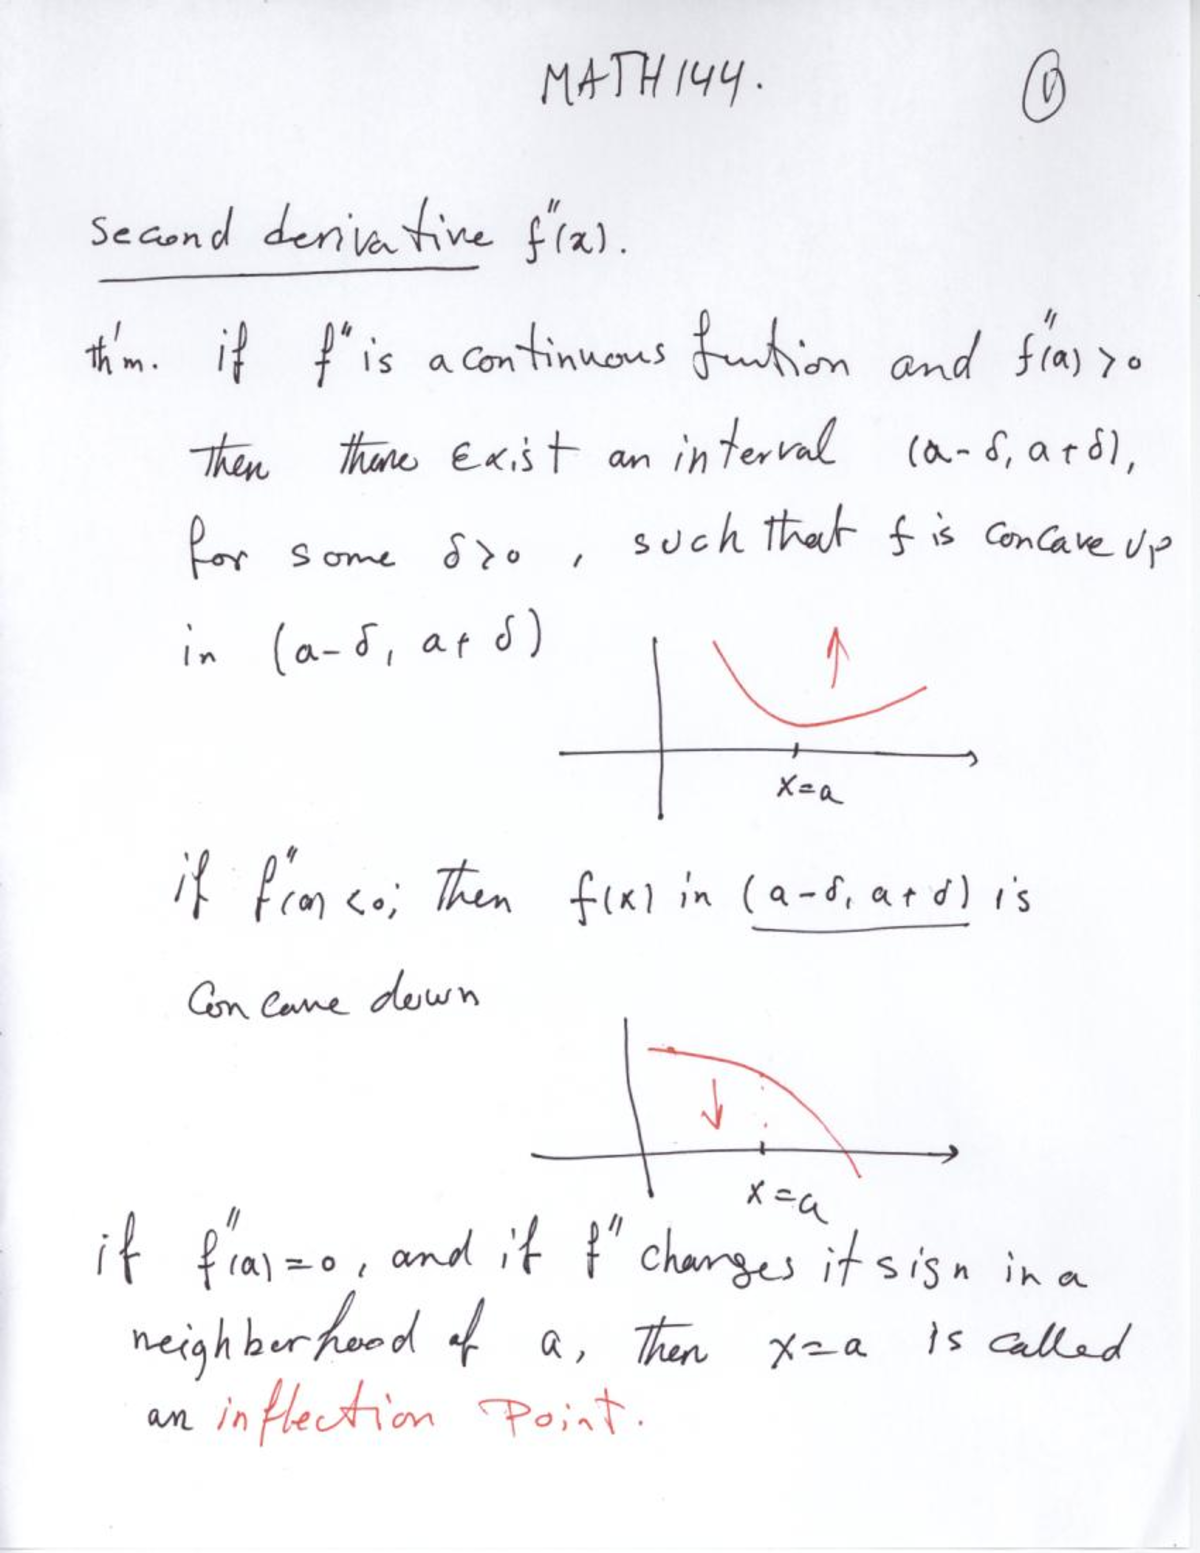 MATH 144.
①
second derivative f''(x).
th'm. if f'' is a continuous funtion and f''(a) > 0
then there exist an interval (a-δ, a+δ),
for some δ>0, such that f is concave up
in (a-δ, a+δ)
x=a
if f''(a) <0; then f(x) in (a-δ, a+δ) is
Concave down
x=a
if f''(a)=0, and if f'' changes it sign in a
neighborhood of a, then x=a is called
an inflection point.